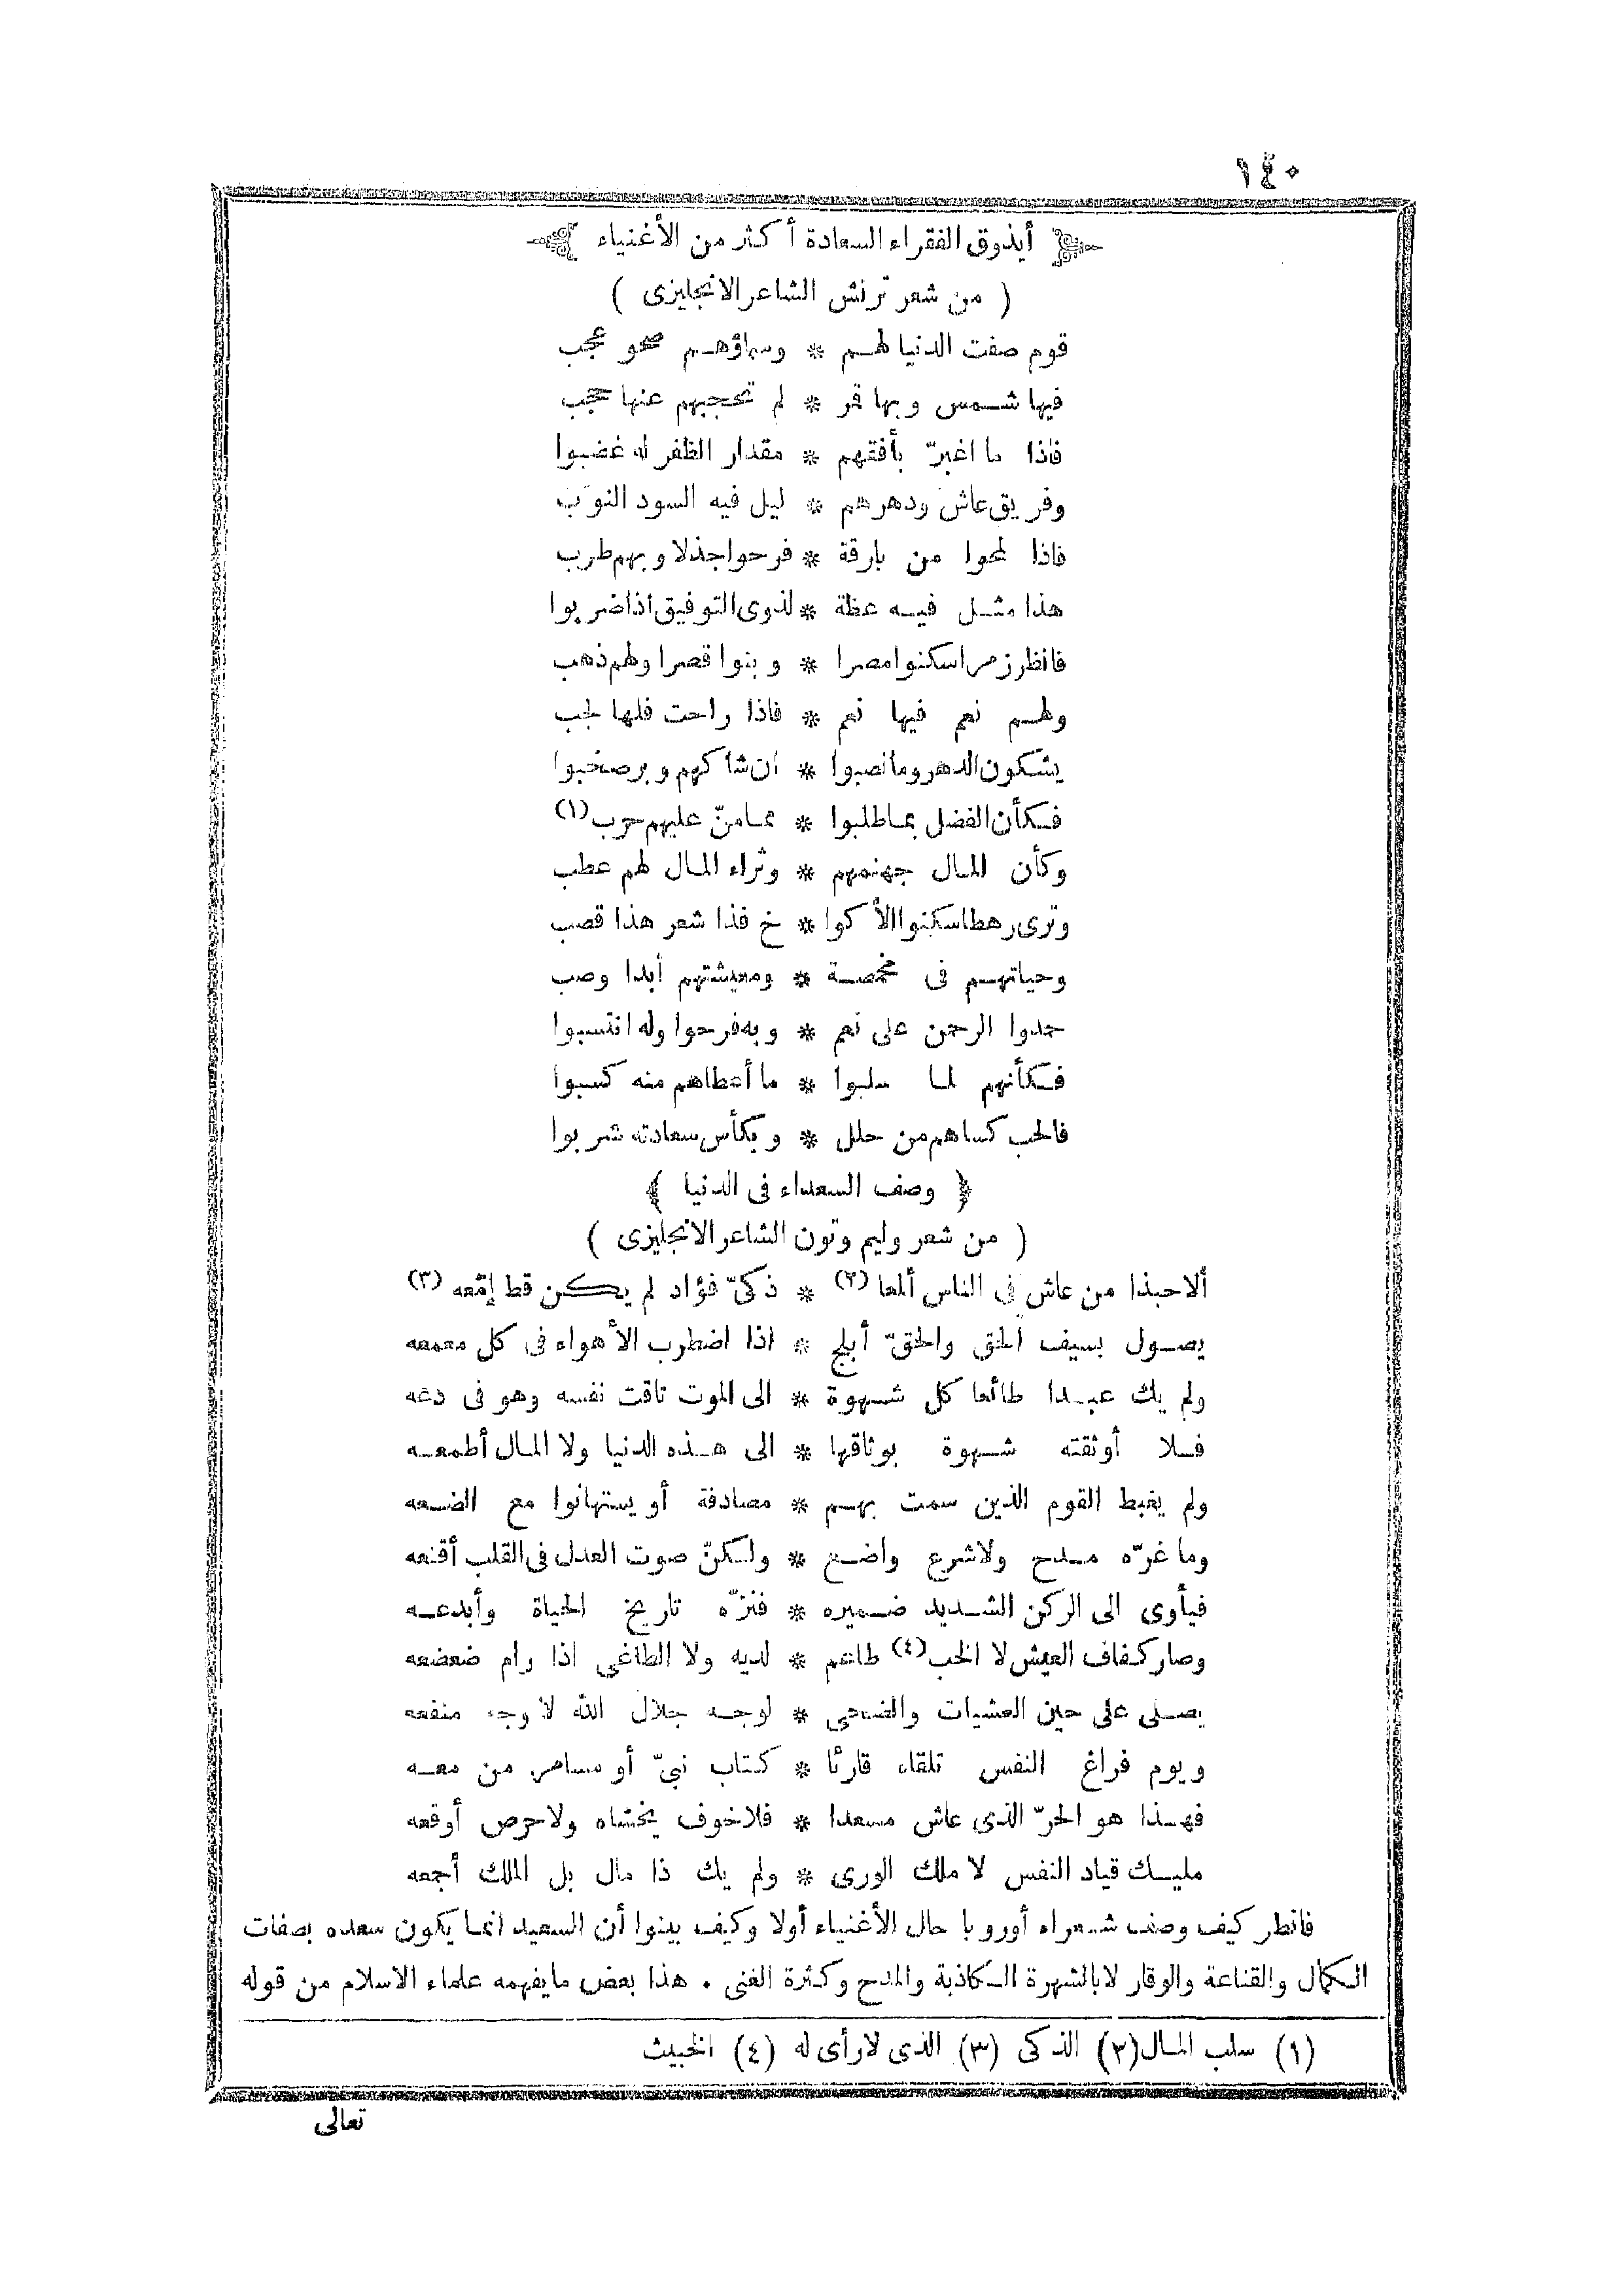 ١٤٠
أيذوق الفقراء السعادة أكثر من الأغنياء
( من شعر ترنش الشاعر الانجليزى )
قوم صفت الدنيا لهم * وسماؤهم صحو عجب
فيها شمس وبها قمر * لم تحجبهم عنها حجب
فاذا ما اغبرّ بأفقهم * مقدار الظفر له غضبوا
وفريق عاش ودهرهم * ليل فيه السود النوّب
فاذا لمحوا من بارقة * فرحوا جذلا وبهم طرب
هذا مثل فيه عظة * لذوى التوفيق اذا ضربوا
فانظر زمرا سكنوا مصرا * وبنوا قصرا ولهم ذهب
ولهم نعم فيها نعم * فاذا راحت فلها لجب
يشكون الدهر وما نصبوا * ان شاكهم وبر صخبوا
فكأن الفضل بما طلبوا * مما منّ عليهم حرب (١)
وكأن المال جهنمهم * وثراء المال لهم عطب
وترى رهطا سكنوا الأكوا * خ فذا شعر هذا قصب
وحياتهم فى مخمصة * ومعيشتهم أبدا وصب
حمدوا الرحمن على نعم * وبه فرحوا وله انتسبوا
فكأنهم لما سلبوا * ما أعطاهم منه كسبوا
فالحب كساهم من حلل * وبكأس سعادته شربوا
﴿ وصف السعداء فى الدنيا ﴾
( من شعر وليم وتون الشاعر الانجليزى )
ألا حبذا من عاش فى الناس ألمعا (٢) * ذكىّ فؤاد لم يكن قط إمّعه (٣)
يصول بسيف الحق والحقّ أبلج * اذا اضطرب الأهواء فى كل معمعه
ولم يك عبدا طائعا كل شهوة * الى الموت تاقت نفسه وهو فى دعه
فلا أوثقته شهوة بوثاقها * الى هذه الدنيا ولا المال أطمعه
ولم يغبط القوم الذين سمت بهم * مصادفة أو يستهانوا مع الضعه
وما غرّه مدح ولا شرع واضع * ولكنّ صوت العدل فى القلب أقنعه
فيأوى الى الركن الشديد ضميره * فنزّه تاريخ الحياة وأبدعه
وصار كفاف العيش لا الخب (٤) طاعم * لديه ولا الطاغى اذا رام ضعضعه
يصلى على حين العشيات والضحى * لوجه جلال الله لا وجه منفعه
ويوم فراغ النفس تلقاه قارئا * كتاب نبىّ أو مسامر من معه
فهذا هو الحرّ الذى عاش مسعدا * فلا خوف يخشاه ولا حرص أوقعه
مليك قياد النفس لا ملك الورى * ولم يك ذا مال بل الملك أجمعه
فانظر كيف وصف شعراء أوروبا حال الأغنياء أولا وكيف بينوا أن السعيد انما يكون سعده بصفات
الكمال والقناعة والوقار لا بالشهرة الكاذبة والمدح وكثرة الغنى . هذا بعض ما يفهمه علماء الاسلام من قوله
(١) سلب المال (٢) الذكى (٣) الذى لا رأى له (٤) الخبيث
تعالى